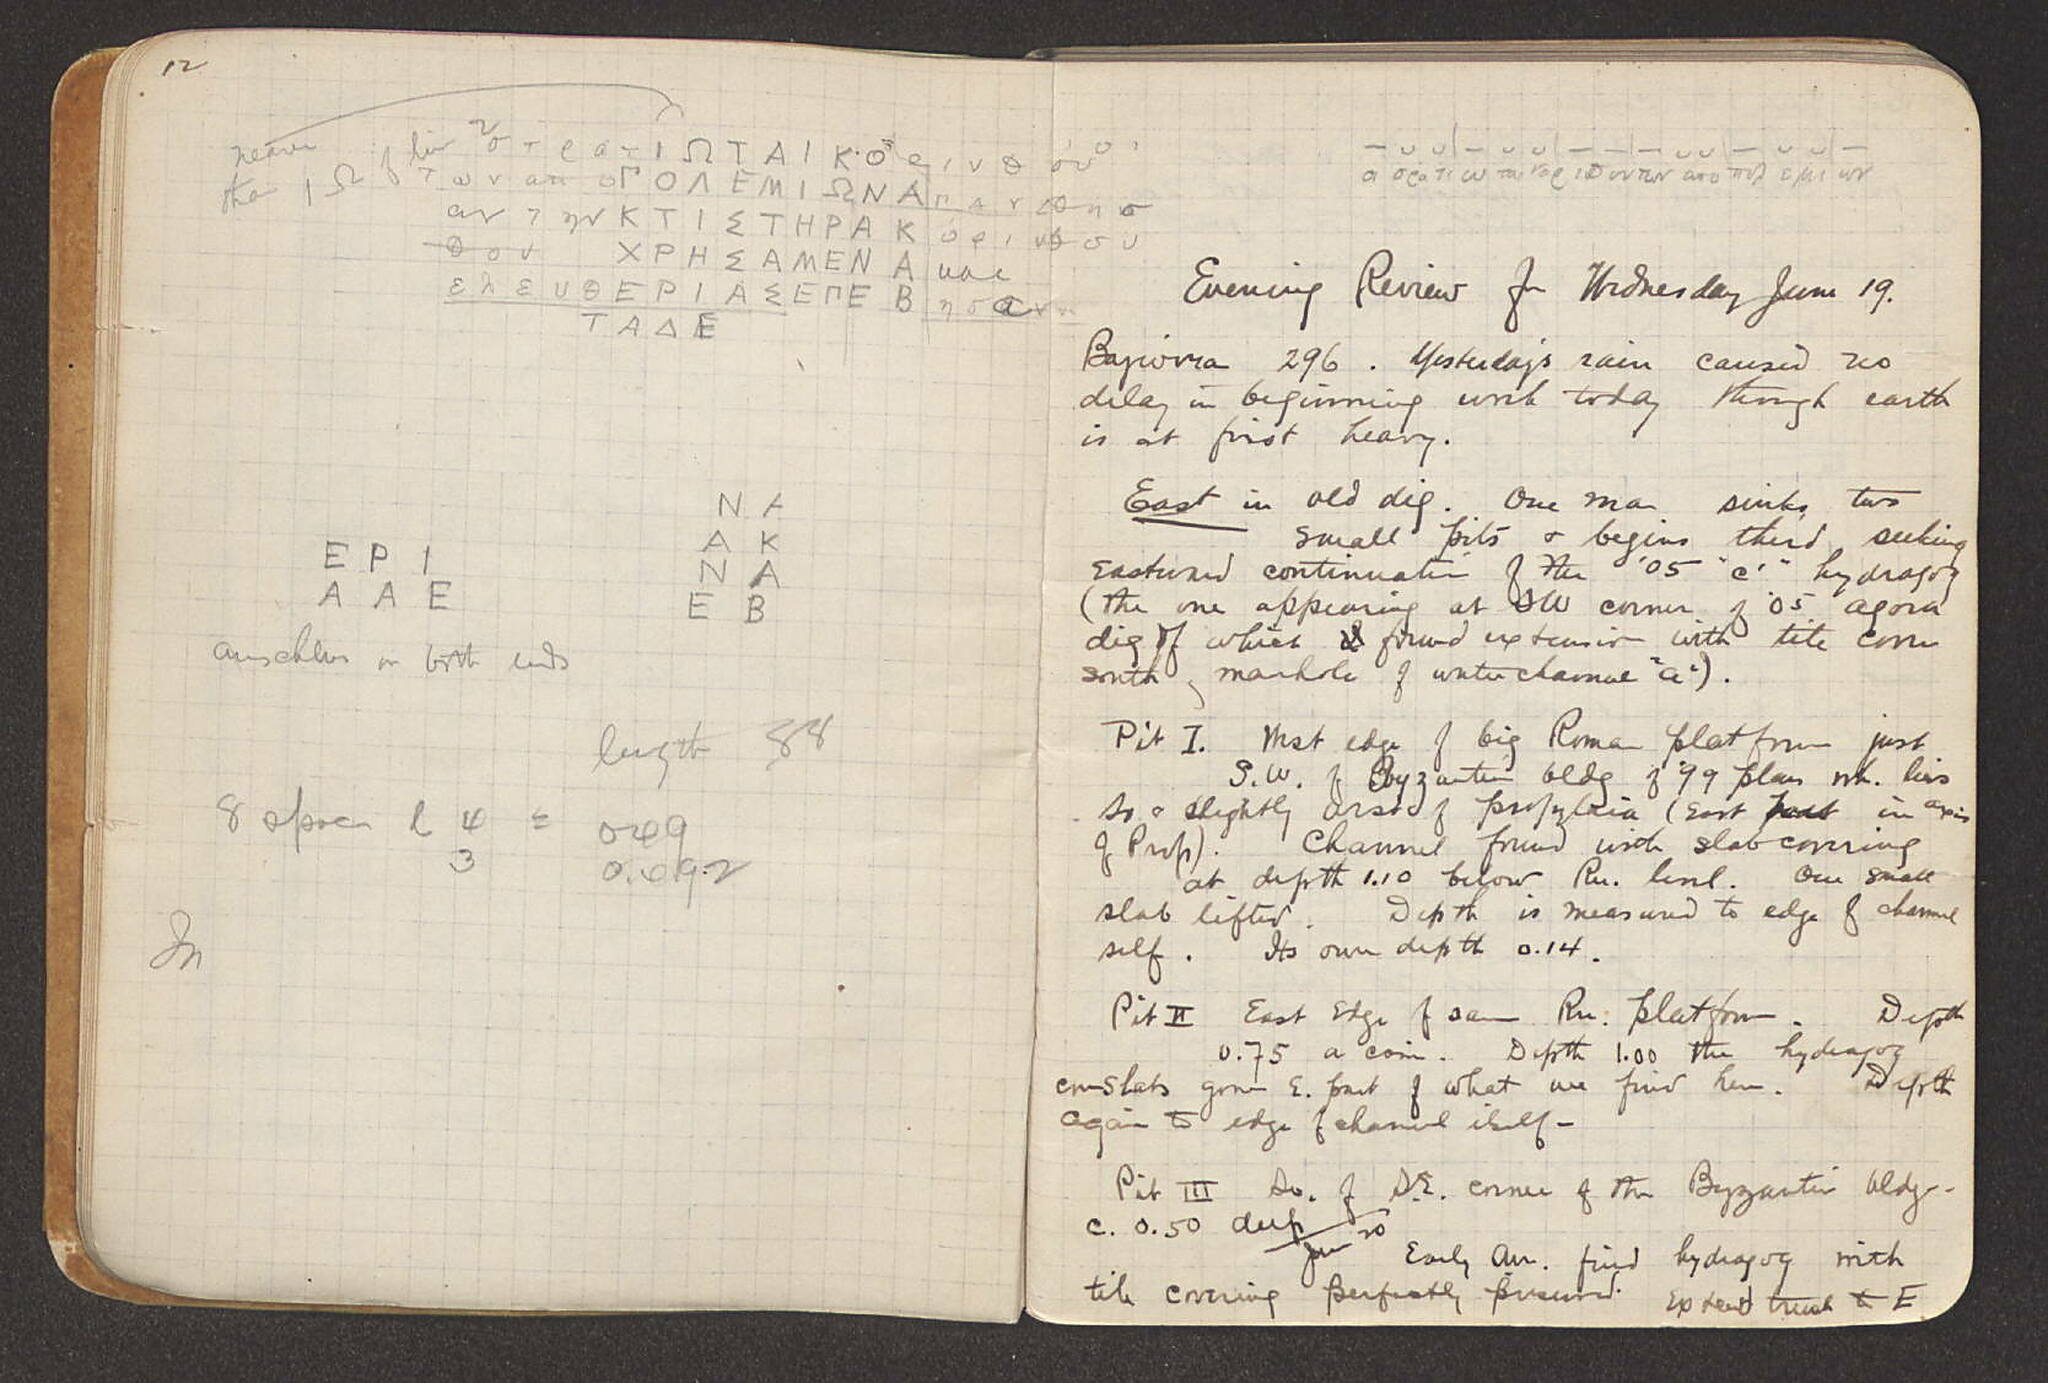 12
nearer
than ΙΩ of line 2
στρατΙΩΤΑΙΚΟρινθόθι
των απ οΓΟΛΕΜΙΩΝΑ
αν την ΚΤΙΣΤΗΡΑΚορινθου
θου ΧΡΗΣΑΜΕΝΑ και
ελευθΕΡΙΑΣΕΠΕΒησαν
ΤΑΔΕ
Ν Α
Α Κ
Ν Α
Ε Β
Ε Ρ Ι
Α Δ Ε
anschluss on both ends
length 88
8 spaces l 4 = 049
3 0.492
In
Evening Review for Wednesday June 19.
296. Yesterday's rain caused no
delay in beginning work today though earth
is at first heavy.
East in old dig. One man sinks two
small pits & begins third seeking
eastward continuation of the '05 "c'" hydragog
(the one appearing at SW corner of '05 agora
dig of which I found extension with tile cover
south of manhole of water channel "a").
Pit I. West edge of big Roman platform just
S.W. of Byzantine bldg of '99 plan wh. lies
So & slightly of propylaia (East part in axis
of Prop). Channel found with slab covering
at depth 1.10 below Rn. level. One small
slab lifted. Depth is measured to edge of channel
self. Its own depth 0.14.
Pit II East Edge of same Rn. platform. Depth
0.75 a coin. Depth 1.00 the hydragog
cov slabs gone E. part of what we find here. Depth
again to edge of channel itself -
Pit III So. of S.E. corner of the Byzantine bldg -
c. 0.50 deep
Jun 20 Early am. find hydragog with
tile covering perfectly preserved. Extend trench to E